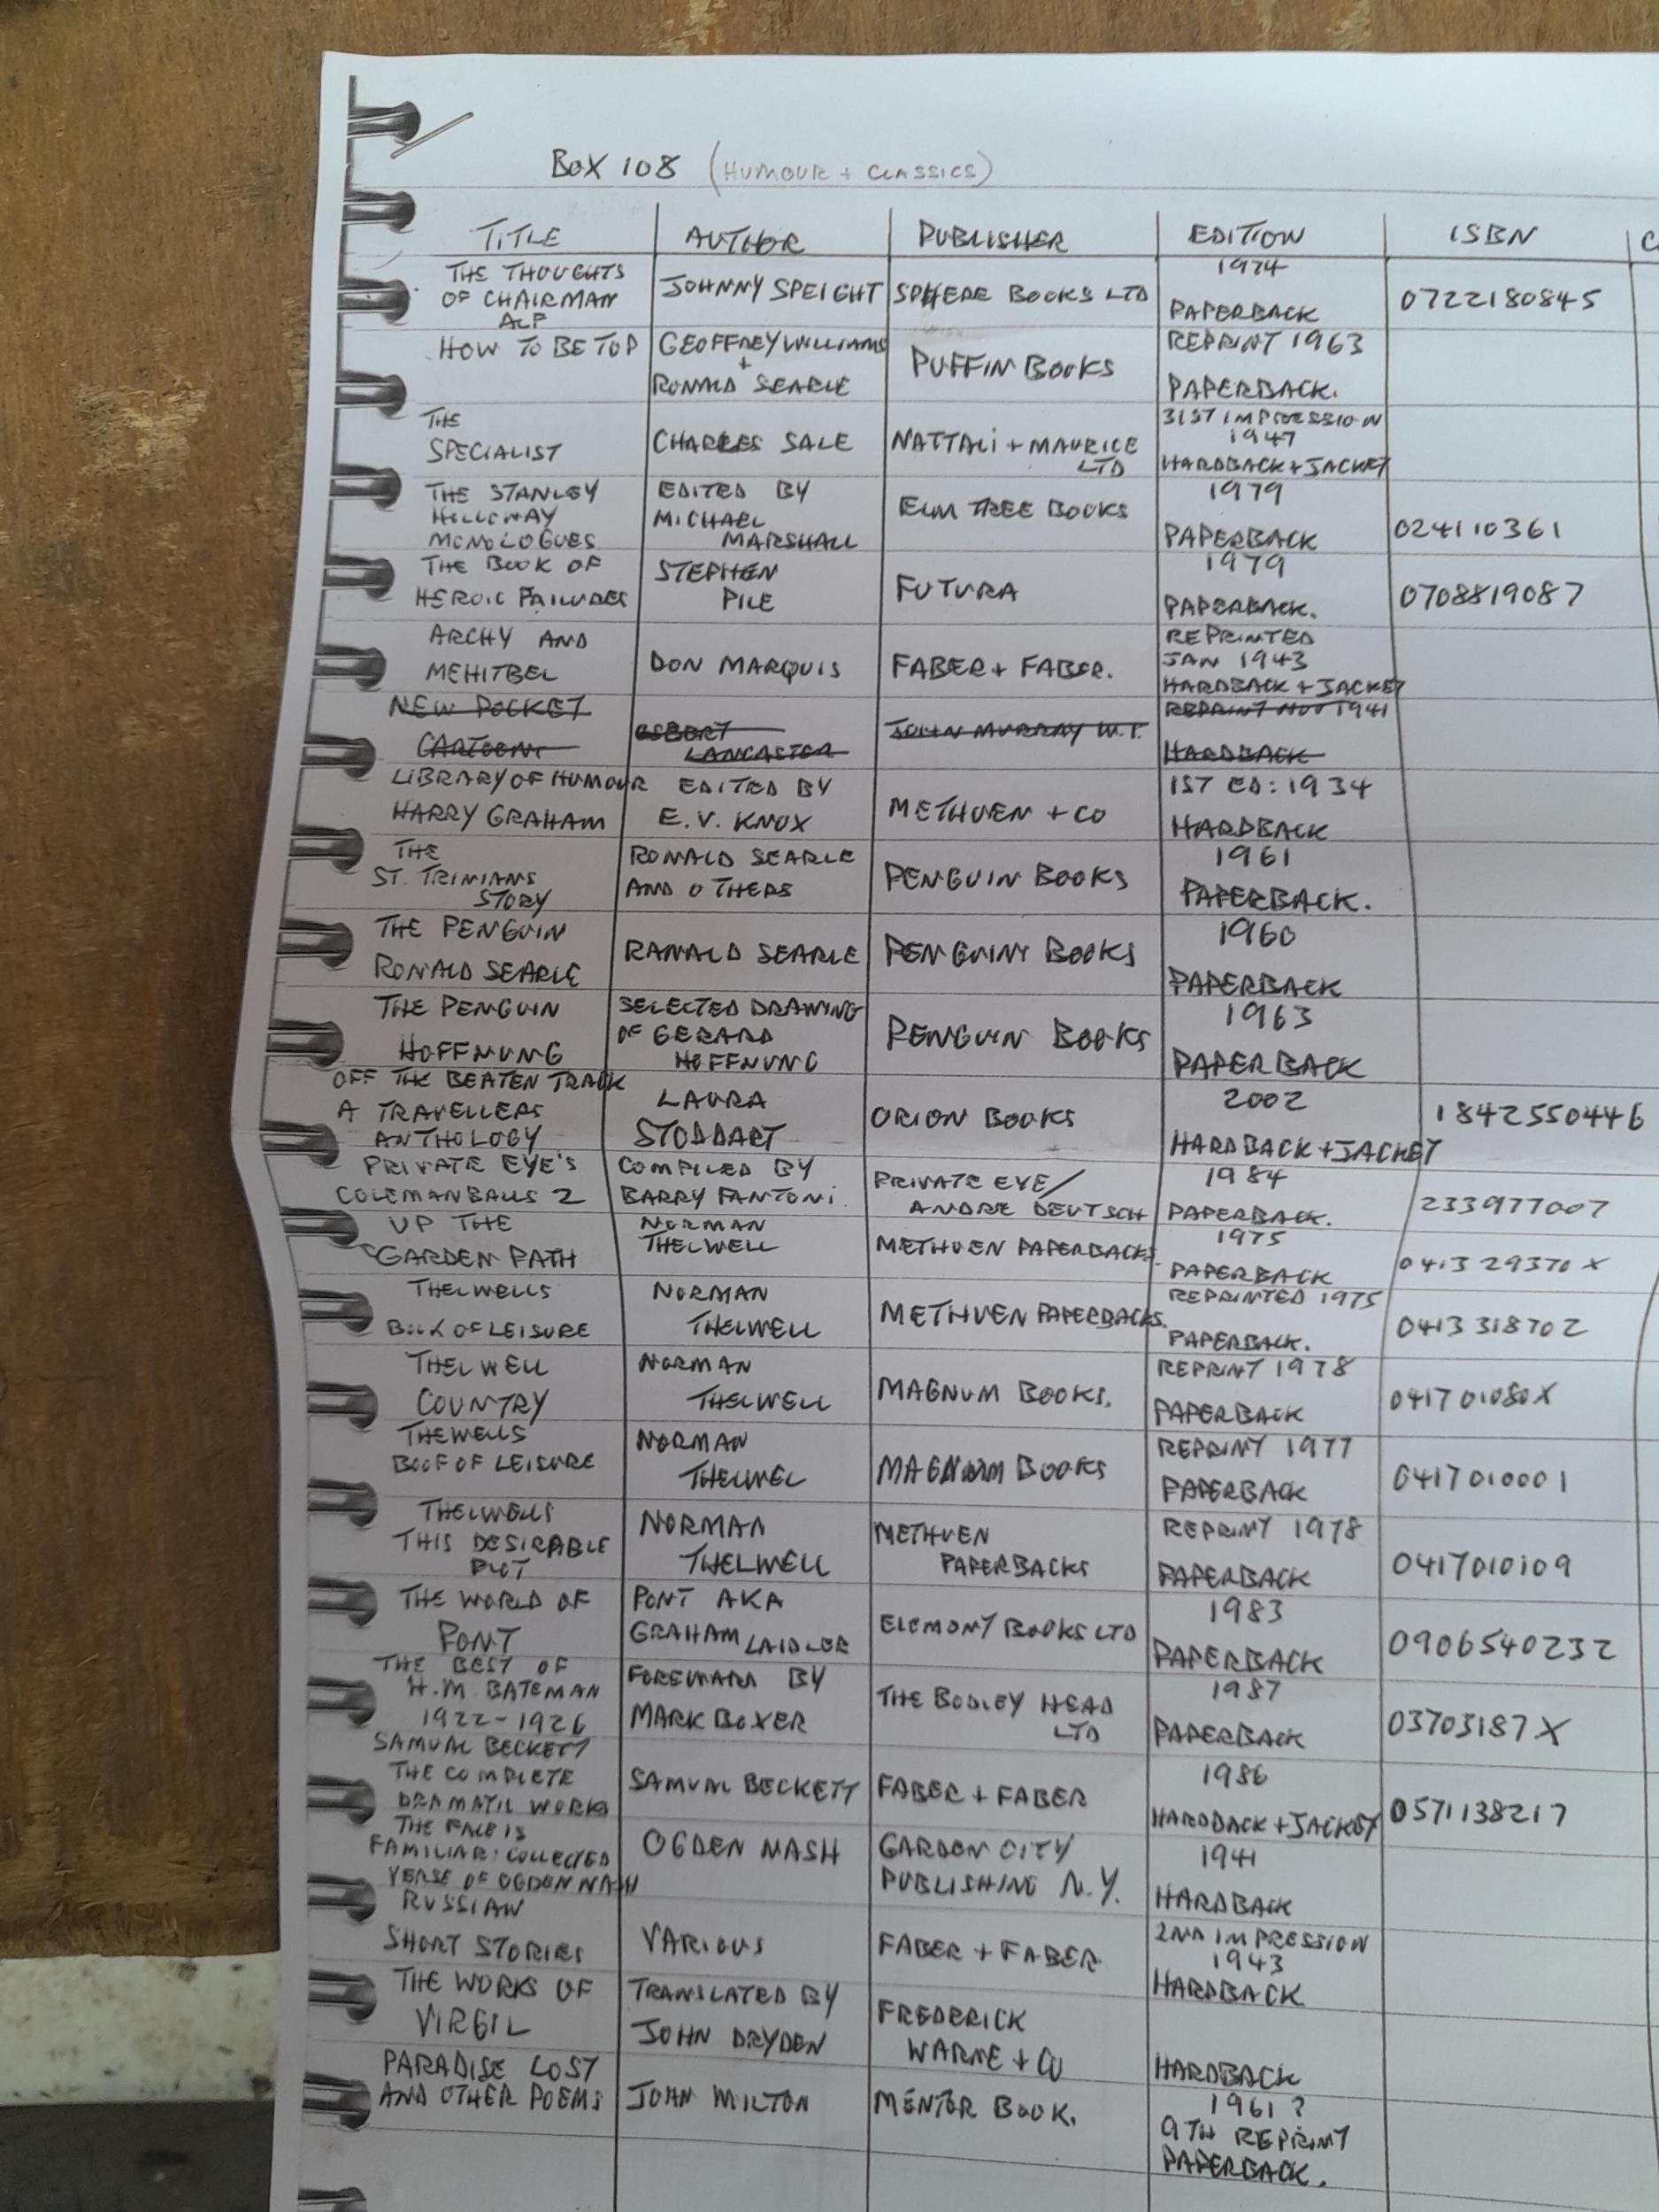 BOX 108 (HUMOUR + CLASSICS)
TITLE AUTHOR PUBLISHER EDITION ISBN C
THE THOUGHTS OF CHAIRMAN ALF JOHNNY SPEIGHT SPHERE BOOKS LTD 1974 PAPERBACK 0722180845
HOW TO BE TOP GEOFFREY WILLIAMS + RONALD SEARLE PUFFIN BOOKS REPRINT 1963 PAPERBACK.
THE SPECIALIST CHARLES SALE NATTALI + MAURICE LTD 31ST IMPRESSION 1947 HARDBACK + JACKET
THE STANLEY HOLLOWAY MONOLOGUES EDITED BY MICHAEL MARSHALL ELM TREE BOOKS 1979 PAPERBACK 024110361
THE BOOK OF HEROIC FAILURES STEPHEN PILE FUTURA 1979 PAPERBACK. 0708819087
ARCHY AND MEHITBEL DON MARQUIS FABER + FABER. REPRINTED JAN 1943 HARDBACK + JACKET
NEW POCKET CARTOONS OSBERT LANCASTER JOHN MURRAY W.1. REPRINT NOV 1941 HARDBACK
LIBRARY OF HUMOUR HARRY GRAHAM EDITED BY E.V. KNOX METHUEN + CO 1ST ED: 1934 HARDBACK
THE ST. TRINIANS STORY RONALD SEARLE AND OTHERS PENGUIN BOOKS 1961 PAPERBACK.
THE PENGUIN RONALD SEARLE RANALD SEARLE PENGUIN BOOKS 1960 PAPERBACK
THE PENGUIN HOFFNUNG SELECTED DRAWING OF GERARD HOFFNUNG PENGUIN BOOKS 1963 PAPERBACK
OFF THE BEATEN TRACK A TRAVELLERS ANTHOLOGY LAURA STODDART ORION BOOKS 2002 HARDBACK + JACKET 1842550446
PRIVATE EYE'S COLEMANBALLS 2 COMPILED BY BARRY FANTONI. PRIVATE EYE/ ANDRE DEUTSCH 1984 PAPERBACK. 233977007
UP THE GARDEN PATH NORMAN THELWELL METHUEN PAPERBACKS. 1975 PAPERBACK 041329370X
THELWELLS BOOK OF LEISURE NORMAN THELWELL METHUEN PAPERBACKS. REPRINTED 1975 PAPERBACK. 0413318702
THELWELL COUNTRY NORMAN THELWELL MAGNUM BOOKS. REPRINT 1978 PAPERBACK 041701080X
THEWELLS BOOF OF LEISURE NORMAN THELWEL MAGNUM BOOKS REPRINT 1977 PAPERBACK 0417010001
THELWELLS THIS DESIRABLE PLOT NORMAN THELWELL METHUEN PAPERBACKS REPRINT 1978 PAPERBACK 0417010109
THE WORLD OF PONT PONT AKA GRAHAM LAIDLER ELEMONT BOOKS LTD 1983 PAPERBACK 0906540232
THE BEST OF H.M. BATEMAN 1922-1926 FOREWARD BY MARK BOXER THE BODLEY HEAD LTD 1987 PAPERBACK 03703187X
SAMUAL BECKETT THE COMPLETE DRAMATIC WORKS SAMUAL BECKETT FABER + FABER 1986 HARDBACK + JACKET 0571138217
THE FACE IS FAMILIAR: COLLECTED VERSE OF OGDEN NASH OGDEN NASH GARDEN CITY PUBLISHING N.Y. 1941 HARDBACK
RUSSIAN SHORT STORIES VARIOUS FABER + FABER 2ND IMPRESSION 1943 HARDBACK
THE WORKS OF VIRGIL TRANSLATED BY JOHN DRYDEN FREDERICK WARNE + CO HARDBACK
PARADISE LOST AND OTHER POEMS JOHN MILTON MENTOR BOOK. 1961? 9TH REPRINT PAPERBACK.